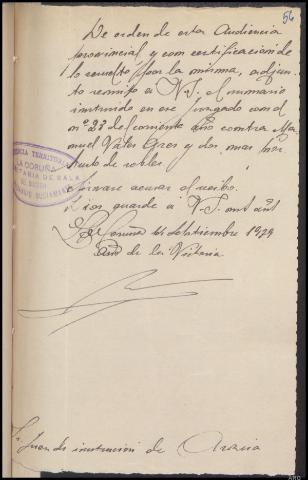 56
De orden de esta Audiencia
provincial y con certificacion de
lo resuelto por la misma, adjun-
to remito a V.S. el sumario
instruido en ese juzgado con el
nº 23 del corriente año contra Ma-
nuel y dos mas por
hurto de robles.
Sirvase acusar el recibo.
Dios guarde a V.S. muchos años
La Coruña Septiembre 1939
Año de la Victoria
AUDIENCIA TERRITORIAL
LA CORUÑA
SECRETARIA DE SALA
Sr. Juez de instrucción de Arzúa